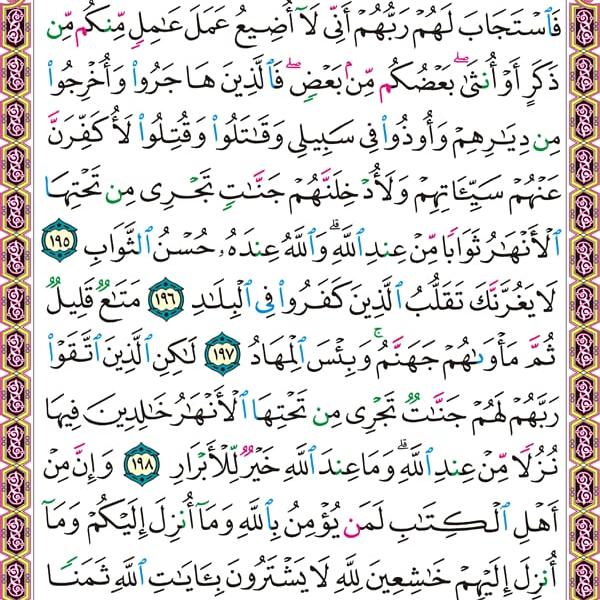 فَٱسْتَجَابَ لَهُمْ رَبُّهُمْ أَنِّى لَآ أُضِيعُ عَمَلَ عَٰمِلٍ مِّنكُم مِّن
ذَكَرٍ أَوْ أُنثَىٰ ۖ بَعْضُكُم مِّنۢ بَعْضٍ ۖ فَٱلَّذِينَ هَاجَرُوا۟ وَأُخْرِجُوا۟
مِن دِيَٰرِهِمْ وَأُوذُوا۟ فِى سَبِيلِى وَقَٰتَلُوا۟ وَقُتِلُوا۟ لَأُكَفِّرَنَّ
عَنْهُمْ سَيِّـَٔاتِهِمْ وَلَأُدْخِلَنَّهُمْ جَنَّٰتٍ تَجْرِى مِن تَحْتِهَا
ٱلْأَنْهَٰرُ ثَوَابًا مِّنْ عِندِ ٱللَّهِ ۗ وَٱللَّهُ عِندَهُۥ حُسْنُ ٱلثَّوَابِ ١٩٥
لَا يَغُرَّنَّكَ تَقَلُّبُ ٱلَّذِينَ كَفَرُوا۟ فِى ٱلْبِلَٰدِ ١٩٦ مَتَٰعٌ قَلِيلٌ
ثُمَّ مَأْوَىٰهُمْ جَهَنَّمُ ۚ وَبِئْسَ ٱلْمِهَادُ ١٩٧ لَٰكِنِ ٱلَّذِينَ ٱتَّقَوْا۟
رَبَّهُمْ لَهُمْ جَنَّٰتٌ تَجْرِى مِن تَحْتِهَا ٱلْأَنْهَٰرُ خَٰلِدِينَ فِيهَا
نُزُلًا مِّنْ عِندِ ٱللَّهِ ۗ وَمَا عِندَ ٱللَّهِ خَيْرٌ لِّلْأَبْرَارِ ١٩٨ وَإِنَّ مِنْ
أَهْلِ ٱلْكِتَٰبِ لَمَن يُؤْمِنُ بِٱللَّهِ وَمَآ أُنزِلَ إِلَيْكُمْ وَمَآ
أُنزِلَ إِلَيْهِمْ خَٰشِعِينَ لِلَّهِ لَا يَشْتَرُونَ بِـَٔايَٰتِ ٱللَّهِ ثَمَنًا